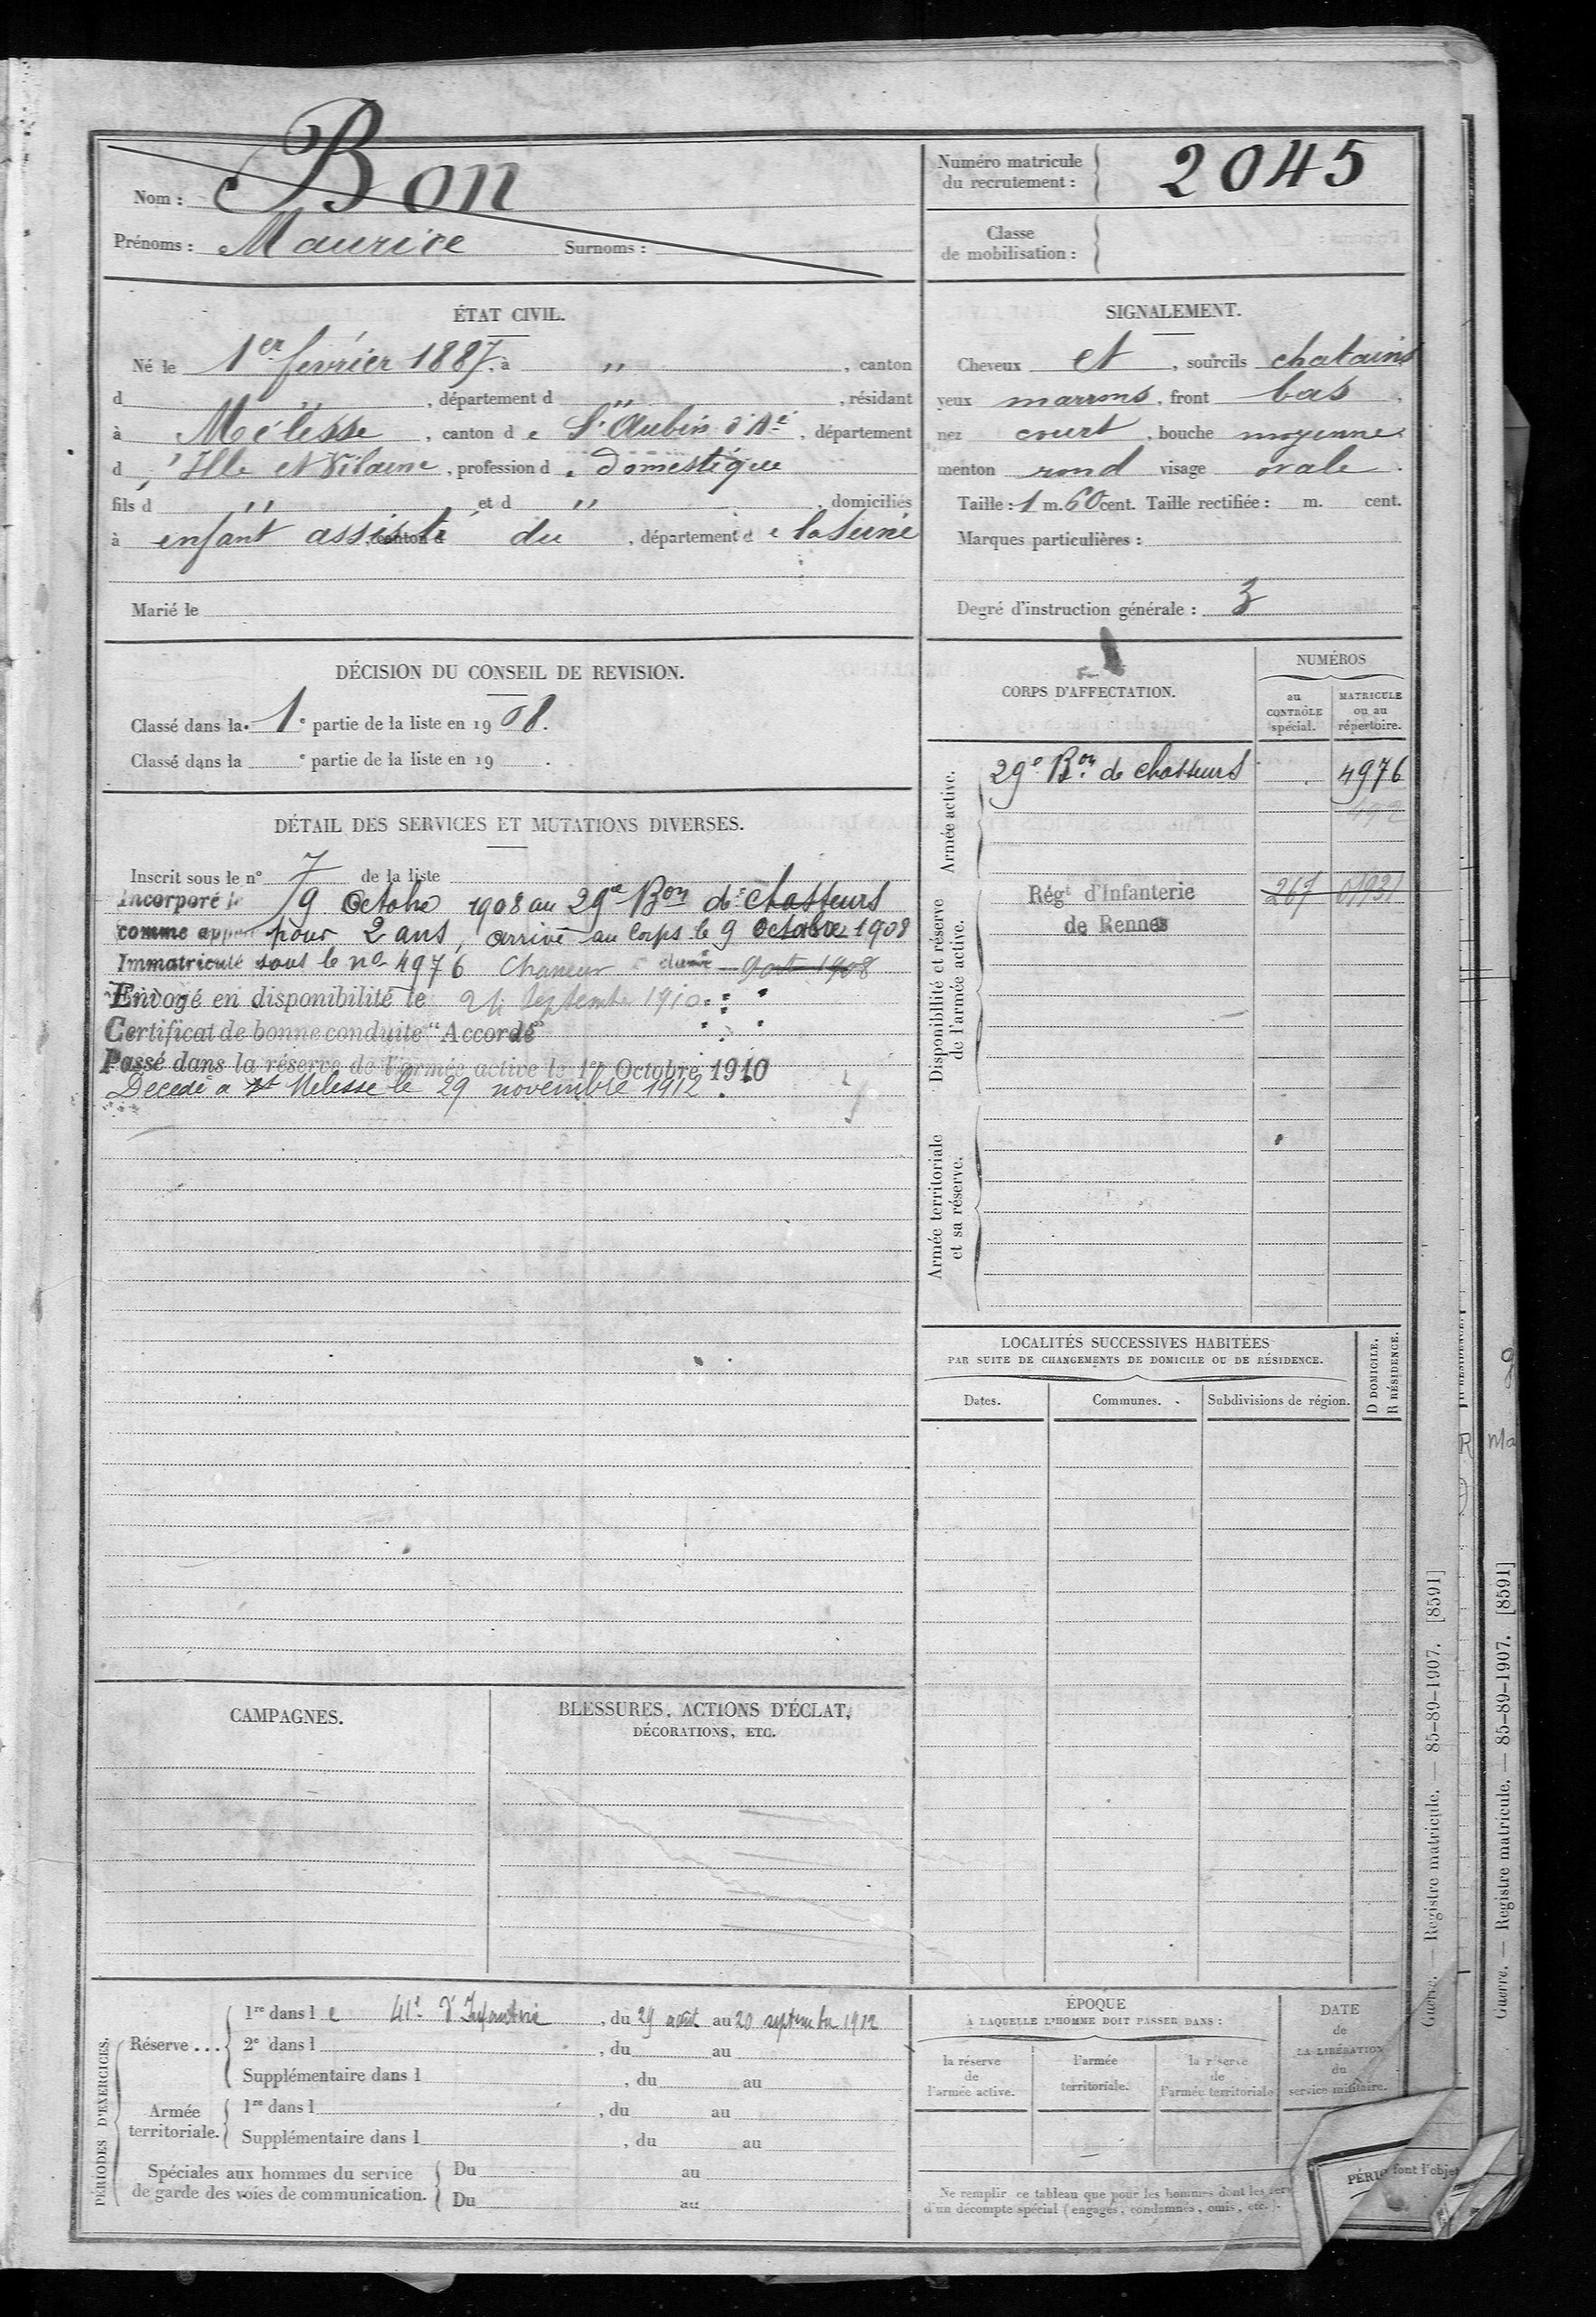 Nom : Bon
Prénoms : Maurice Surnoms :
Numéro matricule
du recrutement : 2045
Classe
de mobilisation :
ÉTAT CIVIL.
Né le 1er février 1887, à " , canton
d " , département d " , résidant
à Mélesse , canton d e St Aubin d'Aé , département
d 'Ille et Vilaine , profession d e domestique
fils d " et d " , domiciliés
à enfant assisté , canton d du , département d e la Seine
Marié le
SIGNALEMENT.
Cheveux et , sourcils chatains
yeux marrons , front bas ,
nez court , bouche moyenne
menton rond visage ovale .
Taille : 1 m. 60 cent. Taille rectifiée : m. cent.
Marques particulières :
Degré d'instruction générale : 3
DÉCISION DU CONSEIL DE REVISION.
Classé dans la 1e partie de la liste en 1908.
Classé dans la e partie de la liste en 19 .
DÉTAIL DES SERVICES ET MUTATIONS DIVERSES.
Inscrit sous le n° 7 de la liste
Incorporé le 9 Octobre 1908 au 29e Bon de chasseurs
comme appelé pour 2 ans, arrivé au Corps le 9 Octobre 1908
Immatriculé sous le no 4976 Chasseur
Envoyé en disponibilité le 24 Septembre 1910
Certificat de bonne conduite "Accordé"
Passé dans la réserve de l'armée active le 1er Octobre 1910
Décédé à Melesse le 29 novembre 1912.
CORPS D'AFFECTATION.
NUMÉROS
au
CONTRÔLE
spécial.
MATRICULE
ou au
répertoire.
Armée active.
29e Bon de chasseurs 4976
Disponibilité et réserve
de l'armée active.
Régt d'Infanterie 267 01931
de Rennes
Armée territoriale
et sa réserve.
LOCALITÉS SUCCESSIVES HABITÉES
PAR SUITE DE CHANGEMENTS DE DOMICILE OU DE RÉSIDENCE.
Dates. Communes. Subdivisions de région.
D DOMICILE.
R RÉSIDENCE.
CAMPAGNES.
BLESSURES, ACTIONS D'ÉCLAT,
DÉCORATIONS, ETC.
PÉRIODES D'EXERCICES.
Réserve...
1re dans l e 41e d'Infanterie , du 29 août au 20 septembre 1912
2e dans l , du au
Supplémentaire dans l , du au
Armée
territoriale.
1re dans l , du au
Supplémentaire dans l , du au
Spéciales aux hommes du service
de garde des voies de communication.
Du au
Du au
ÉPOQUE
À LAQUELLE L'HOMME DOIT PASSER DANS :
la réserve
de
l'armée active.
l'armée
territoriale.
la réserve
de
l'armée territoriale
DATE
de
LA LIBÉRATION
du
service militaire.
Ne remplir ce tableau que pour les hommes dont les
d'un décompte spécial (engagés, condamnés, omis, etc.).
font l'objet
Guerre. — Registre matricule. — 85-89-1907. [8591]
Guerre. — Registre matricule. — 85-89-1907. [8591]